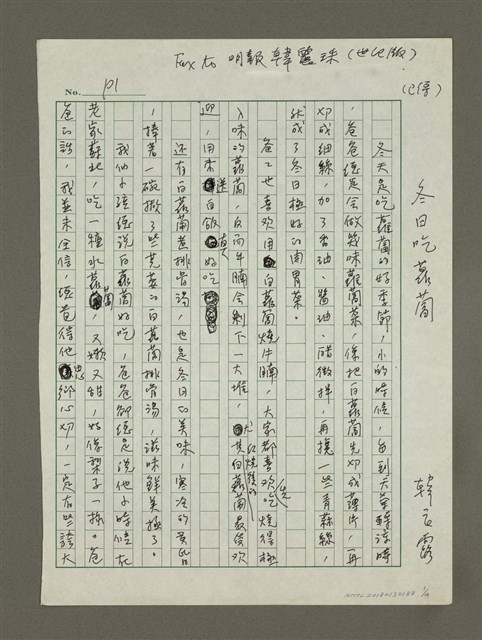 Fax to 明報韓靈珠（世紀版）
（已傳）
No. P1
冬日吃蘿蔔
韓良露
冬天是吃蘿蔔的好季節，小的時候，每到天氣轉涼時
，爸爸總是會做幾味蘿蔔菜，像把白蘿蔔先切成薄片，再
切成細絲，加了香油、醬油、醋微拌，再撓一些青蒜絲，
就成了冬日極好的開胃菜。
爸爸也喜歡用白蘿蔔燒牛腩，大家都喜歡吃先燒得極
入味的蘿蔔，反而牛腩會剩下一大堆，尤其紅燒後的白蘿蔔最受歡
迎，用來送白飯真好吃。
還有白蘿蔔煮排骨湯，也是冬日的美味，寒冷的黃昏
，捧著一碗撒了些芫荽的白蘿蔔排骨湯，滋味鮮美極了。
我們小孩總說白蘿蔔好吃，爸爸卻總是說他小時候在
老家蘇北，吃一種水蘿蔔，又嫩又甜，好像梨子一樣。爸
爸的話，我並未全信，總覺得他思鄉心切，一定有些誇大
NMTL20180130188 1/4